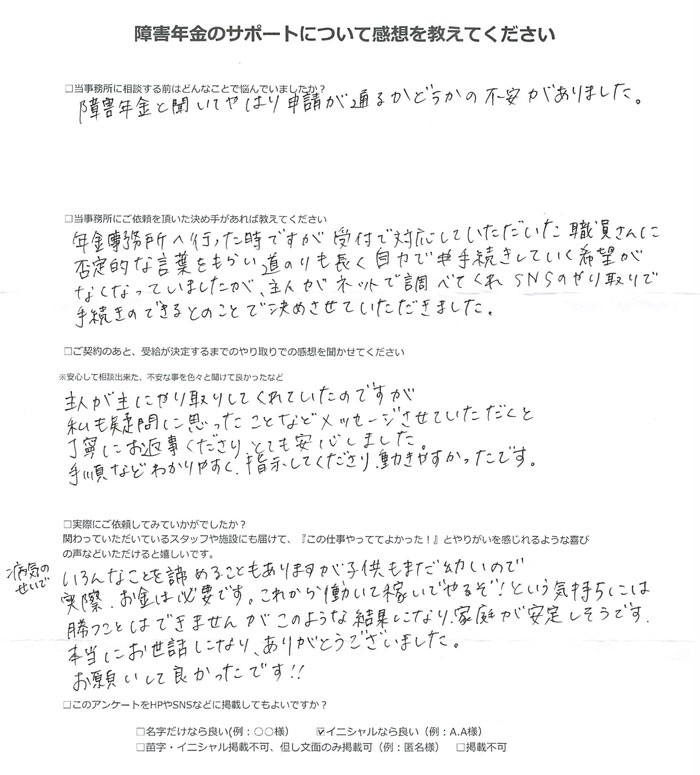 障害年金のサポートについて感想を教えてください
□当事務所に相談する前はどんなことで悩んでいましたか？
障害年金と聞いてやはり申請が通るかどうかの不安がありました。
□当事務所にご依頼を頂いた決め手があれば教えてください
年金事務所へ行った時ですが受付で対応していただいた職員さんに
否定的な言葉をもらい道のりも長く自力で手続きしていく希望が
なくなっていましたが、主人がネットで調べてくれSNSのやり取りで
手続きのできるとのことで決めさせていただきました。
□ご契約のあと、受給が決定するまでのやり取りでの感想を聞かせてください
※安心して相談出来た、不安な事を色々と聞けて良かったなど
主人が主にやり取りしてくれていたのですが
私も疑問に思ったことなどメッセージさせていただくと
丁寧にお返事くださりとても安心しました。
手順などわかりやすく、指示してくださり動きやすかったです。
□実際にご依頼してみていかがでしたか？
関わっていただいているスタッフや施設にも届けて、『この仕事やっててよかった！』とやりがいを感じれるような喜び
の声などいただけると嬉しいです。
病気の
せいで
いろんなことを諦めることもありますが子供もまだ幼いので
実際、お金は必要です。これから働いて稼いでやるぞ！という気持ちには
勝つことはできませんがこのような結果になり、家庭が安定しそうです。
本当にお世話になり、ありがとうございました。
お願いして良かったです!!
□このアンケートをHPやSNSなどに掲載してもよいですか？
□名字だけなら良い(例：○○様） ☑イニシャルなら良い（例：A.A様）
□苗字・イニシャル掲載不可、但し文面のみ掲載可（例：匿名様） □掲載不可